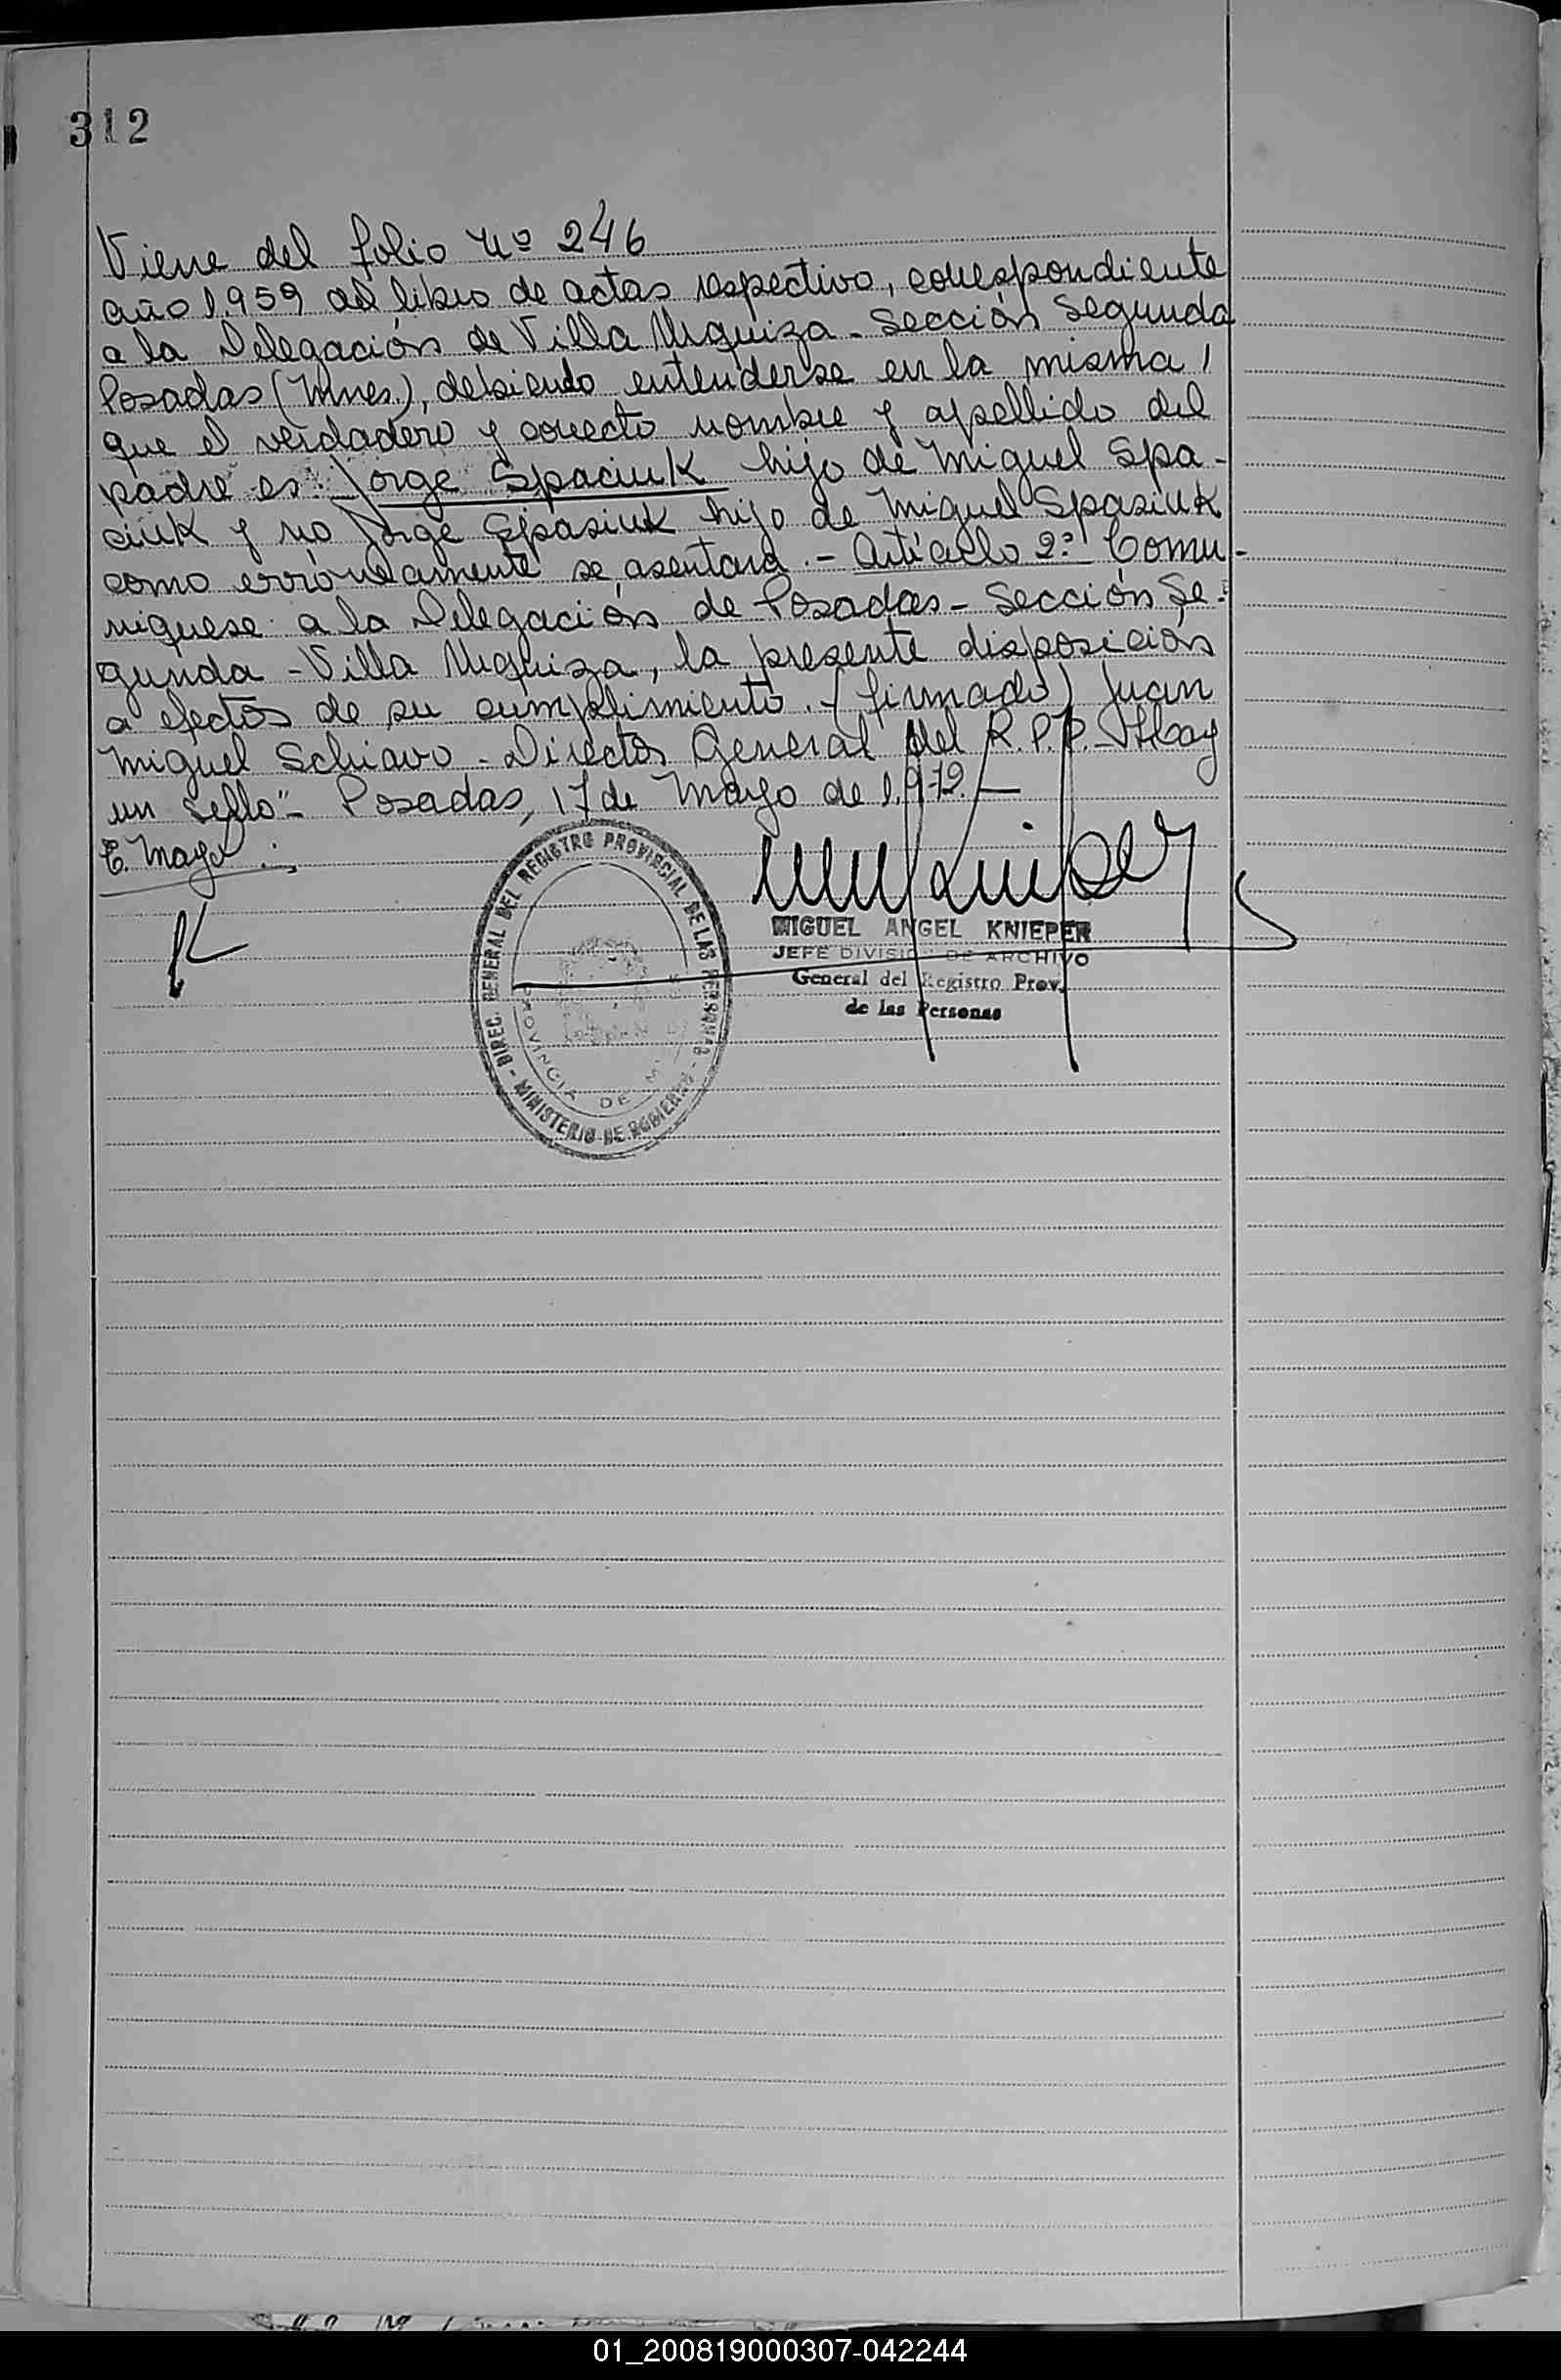 312
Viene del folio Nº 246
año 1.959 del libro de actas respectivo, correspondiente
a la Delegación de Villa Urquiza - Sección Segunda
Posadas (Mnes.), debiendo entenderse en la misma,
que el verdadero y correcto nombre y apellido del
padre es: Jorge Spaciuk hijo de Miguel Spa-
ciuk y no Jorge Spasiuk hijo de Miguel Spasiuk
como erróneamente se asentara.- Artículo 2º: Comu-
níquese a la Delegación de Posadas - Sección Se-
gunda - Villa Urquiza, la presente disposición
a efectos de su cumplimiento. - (firmado) Juan
Miguel Schiavo - Director General del R.P.P. - Hay
un sello"- Posadas, 17 de Mayo de 1.972.-
E. Mayo
MIGUEL ANGEL KNIEPER
JEFE DIVISION DE ARCHIVO
General del Registro Prov.
de las Personas
DIREC. GENERAL DEL REGISTRO PROVINCIAL DE LAS PERSONAS - MINISTERIO DE GOBIERNO -
PROVINCIA DE
01_200819000307-042244